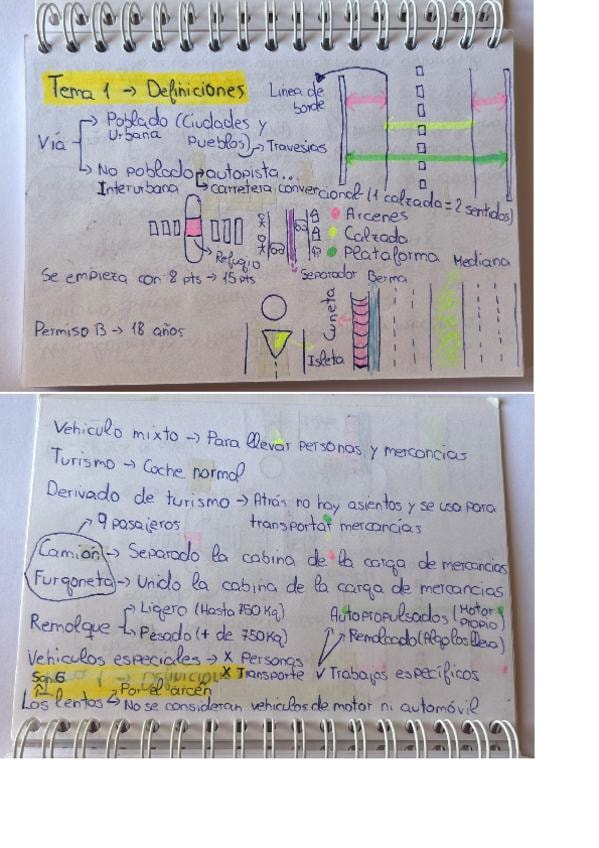 Tema 1 → Definiciones
Linea de
borde
Vía
→ Poblado (Ciudades y
Urbana
Pueblos) → Travesias
→ No poblado
Interurbana
autopista...
carretera convencional (1 calzada = 2 sentidos)
Arcenes
Calzada
Plataforma
Mediana
Refugio
Separador
Berma
Se empieza con 8 pts → 15 pts
Cuneta
Permiso B → 18 años
Isleta
Vehiculo mixto → Para llevar personas y mercancias
Turismo → Coche normal
Derivado de turismo → Atrás no hay asientos y se usa para
transportar mercancías
9 pasajeros
Camión → Separado la cabina de la carga de mercancias
Furgoneta → Unido la cabina de la carga de mercancias
Remolque
→ Ligero (Hasta 750 Kg)
→ Pesado (+ de 750 Kg)
Autopropulsados (Motor
propio)
Remolcado
Vehiculos especiales → X Personas
X Transporte
✓ Trabajos específicos
Los lentos
Por el arcén
No se consideran vehiculos de motor ni automóvil